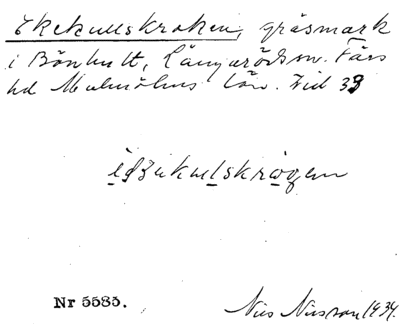 Ekekullskroken, gräsmark
i Bönhult, Långarödssn. Färs
hd Malmöhus län. Fid 33
Nr 5585.
Nils Nilsson 1934.